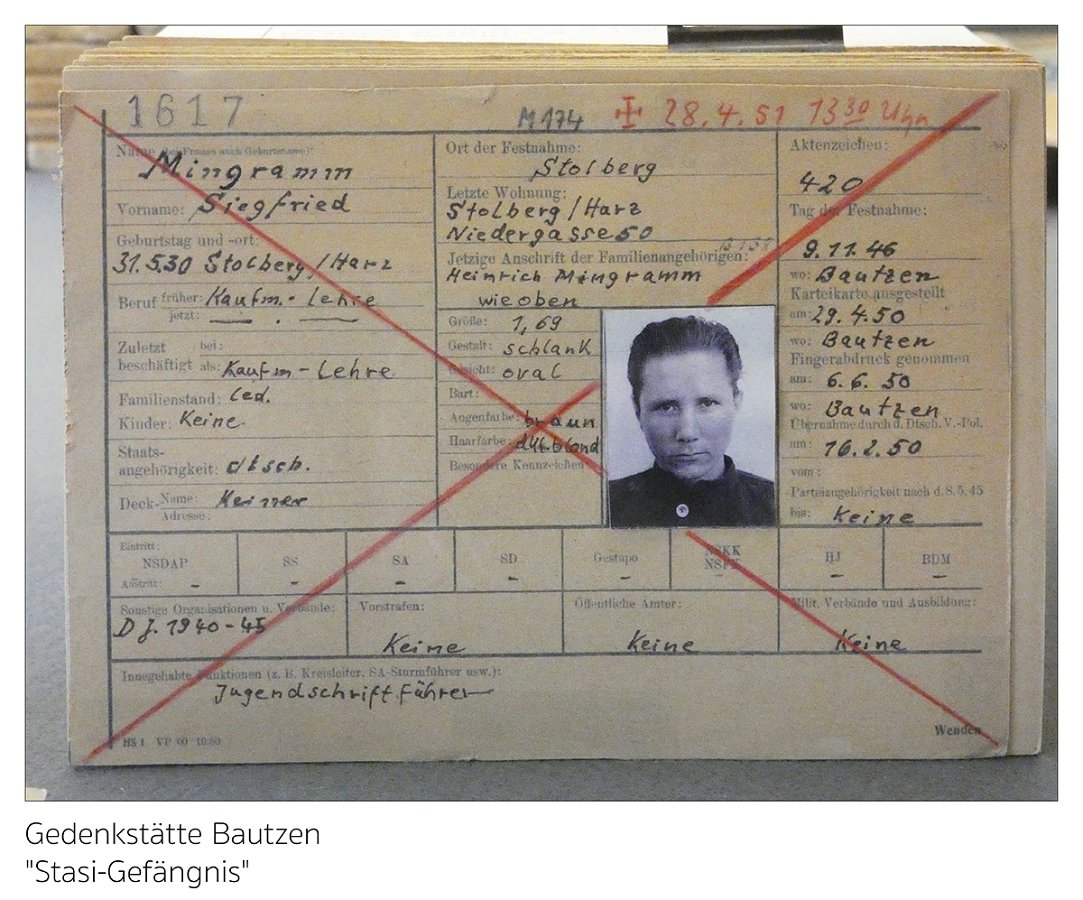 1617
M 174
28.4.51 13 30 Uhn
Name (bei Frauen auch Geburtsname):
Mingramm
Vorname: Siegfried
Geburtstag und -ort:
31.5.30 Stolberg/Harz
Beruf früher: Kaufm.- Lehre
jetzt:
Zuletzt bei:
beschäftigt als: Kaufm - Lehre
Familienstand: led.
Kinder: Keine
Staats-
angehörigkeit: dtsch.
Deck- Name:
Adresse:
Ort der Festnahme:
Stolberg
Letzte Wohnung:
Stolberg/Harz
Niedergasse 50
Jetzige Anschrift der Familienangehörigen:
Heinrich Mingramm
wie oben
Größe: 1,69
Gestalt: schlank
Gesicht: oval
Bart:
Augenfarbe: braun
Haarfarbe: dkl.blond
Besondere Kennzeichen:
Aktenzeichen:
420
Tag der Festnahme:
9.11.46
wo: Bautzen
Karteikarte ausgestellt
am: 29.4.50
wo: Bautzen
Fingerabdruck genommen
am: 6.6.50
wo: Bautzen
Übernahme durch d. Dtsch. V.-Pol.
am: 16.2.50
vom:
Parteizugehörigkeit nach d. 8.5.45
bis: Keine
Eintritt:
NSDAP SS SA SD Gestapo NSKK NSFK HJ BDM
Austritt: - - - - - - - -
Sonstige Organisationen u. Verbände:
DJ. 1940-45
Vorstrafen:
Keine
Öffentliche Ämter:
Keine
Milit. Verbände und Ausbildung:
Keine
Innegehabte Funktionen (z. B. Kreisleiter, SA-Sturmführer usw.):
Jugendschriftführer
HS 1 VP
Wenden
Gedenkstätte Bautzen
"Stasi-Gefängnis"